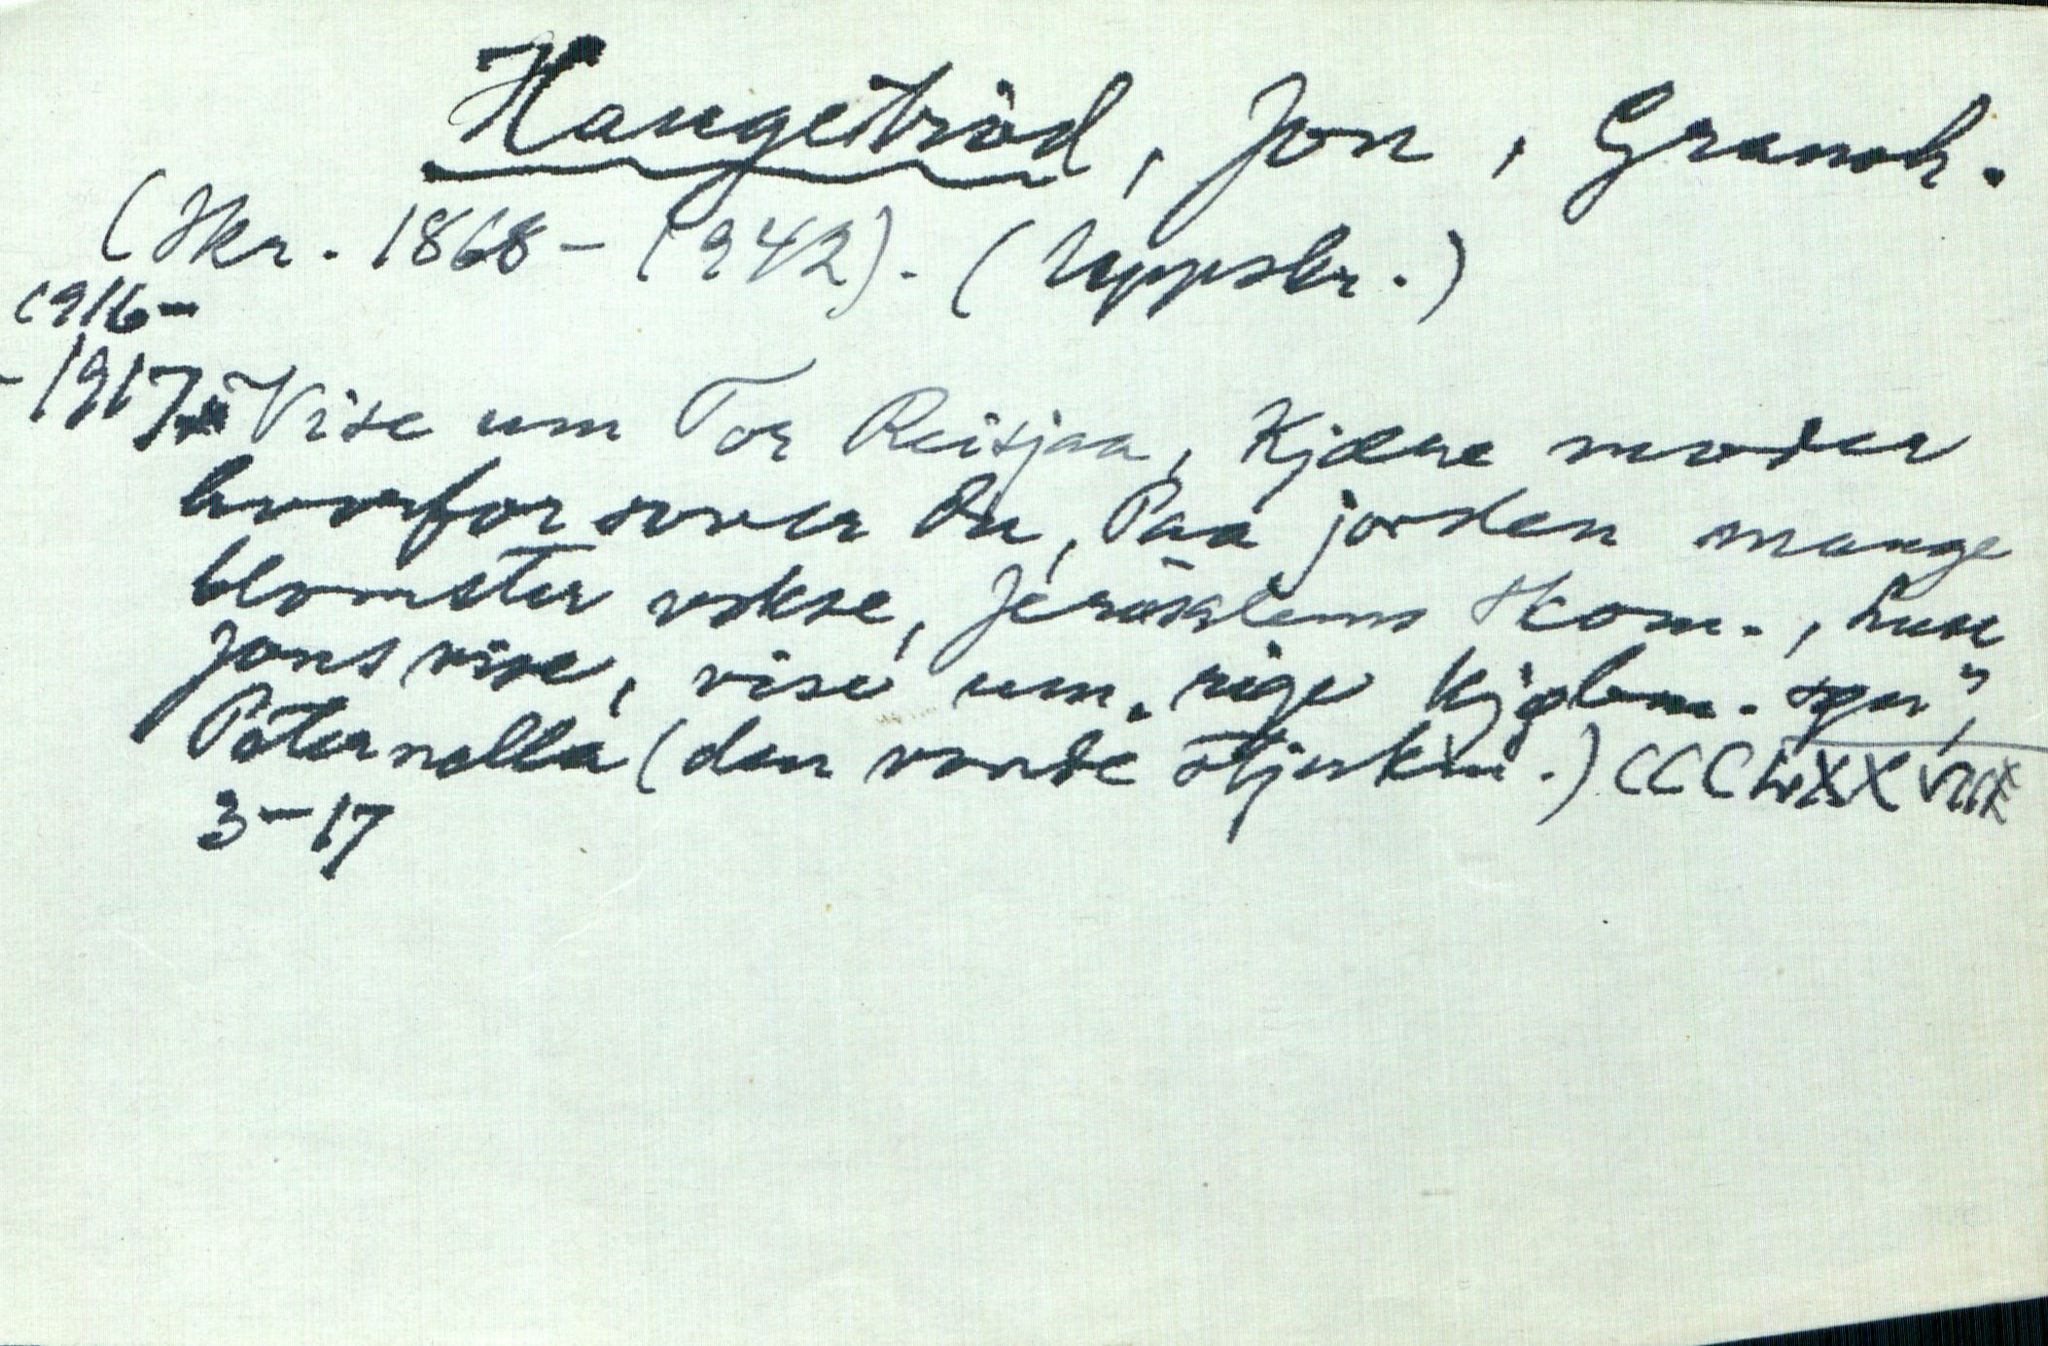 Haugetröd, Jon, Gransh.
(Skr. 1868 - 1942). (Uppskr.)
1916-
-1917. Vise um Tor Reisjaa, Kjære moder
hvorfor sover du, Paa jorden mange
blomster vokse, Jerusalems Skom.,
Jons vise, vise um "rige kjøbm. søn",
Peternella (den vonde Stjukm.) CCCLXXVIII
3-17